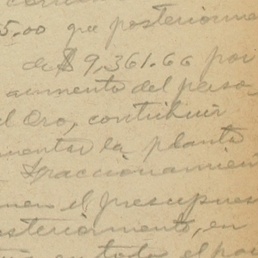 5.00 que posteriorme
de $ 9,361.66 por
aumento del perso-
el Oro, contribuir
la planta
fraccionamien
en el presupues
osteriormente, en
en todo el